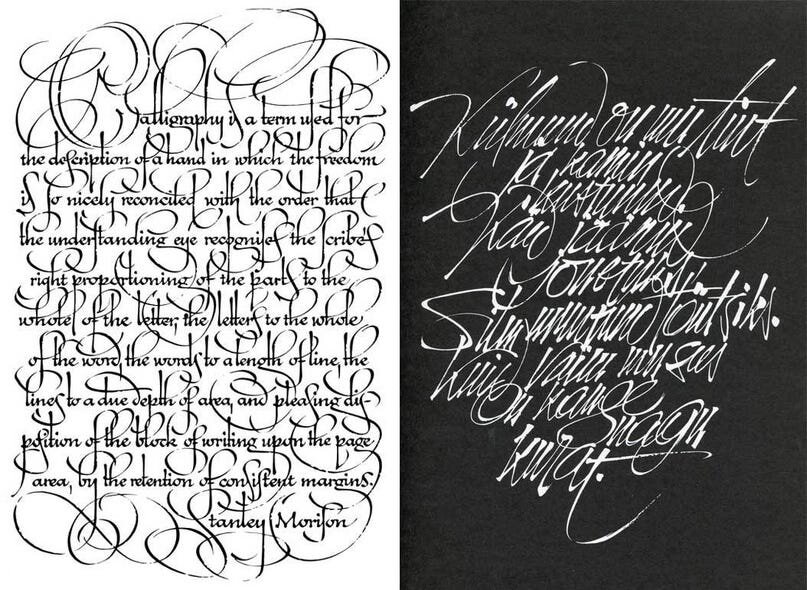 Calligraphy is a term used for
the description of a hand in which the freedom
is so nicely reconciled with the order that
the understanding eye recognises the scribes
right proportioning of the parts to the
whole of the letter, the letters to the whole
of the word, the words to a length of line, the
lines to a due depth of area, and pleasing dis-
position of the block of writing upon the page
area, by the retention of consistent margins.
Stanley Morison
Külmund on mu tint
ja kamin
kustunud.
Silm muutund
Kuid vaim mu sees
on kange nagu
kurat.